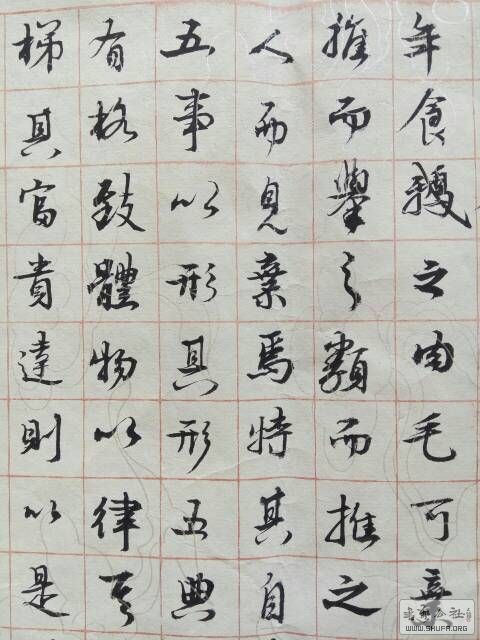 年食之肉毛可
推而舉之類而推之
人而見棄焉特其自
五事以形具形五典
有格致體物以律
梯其富貴達則以是
書法公社
WWW.SHUFA.ORG